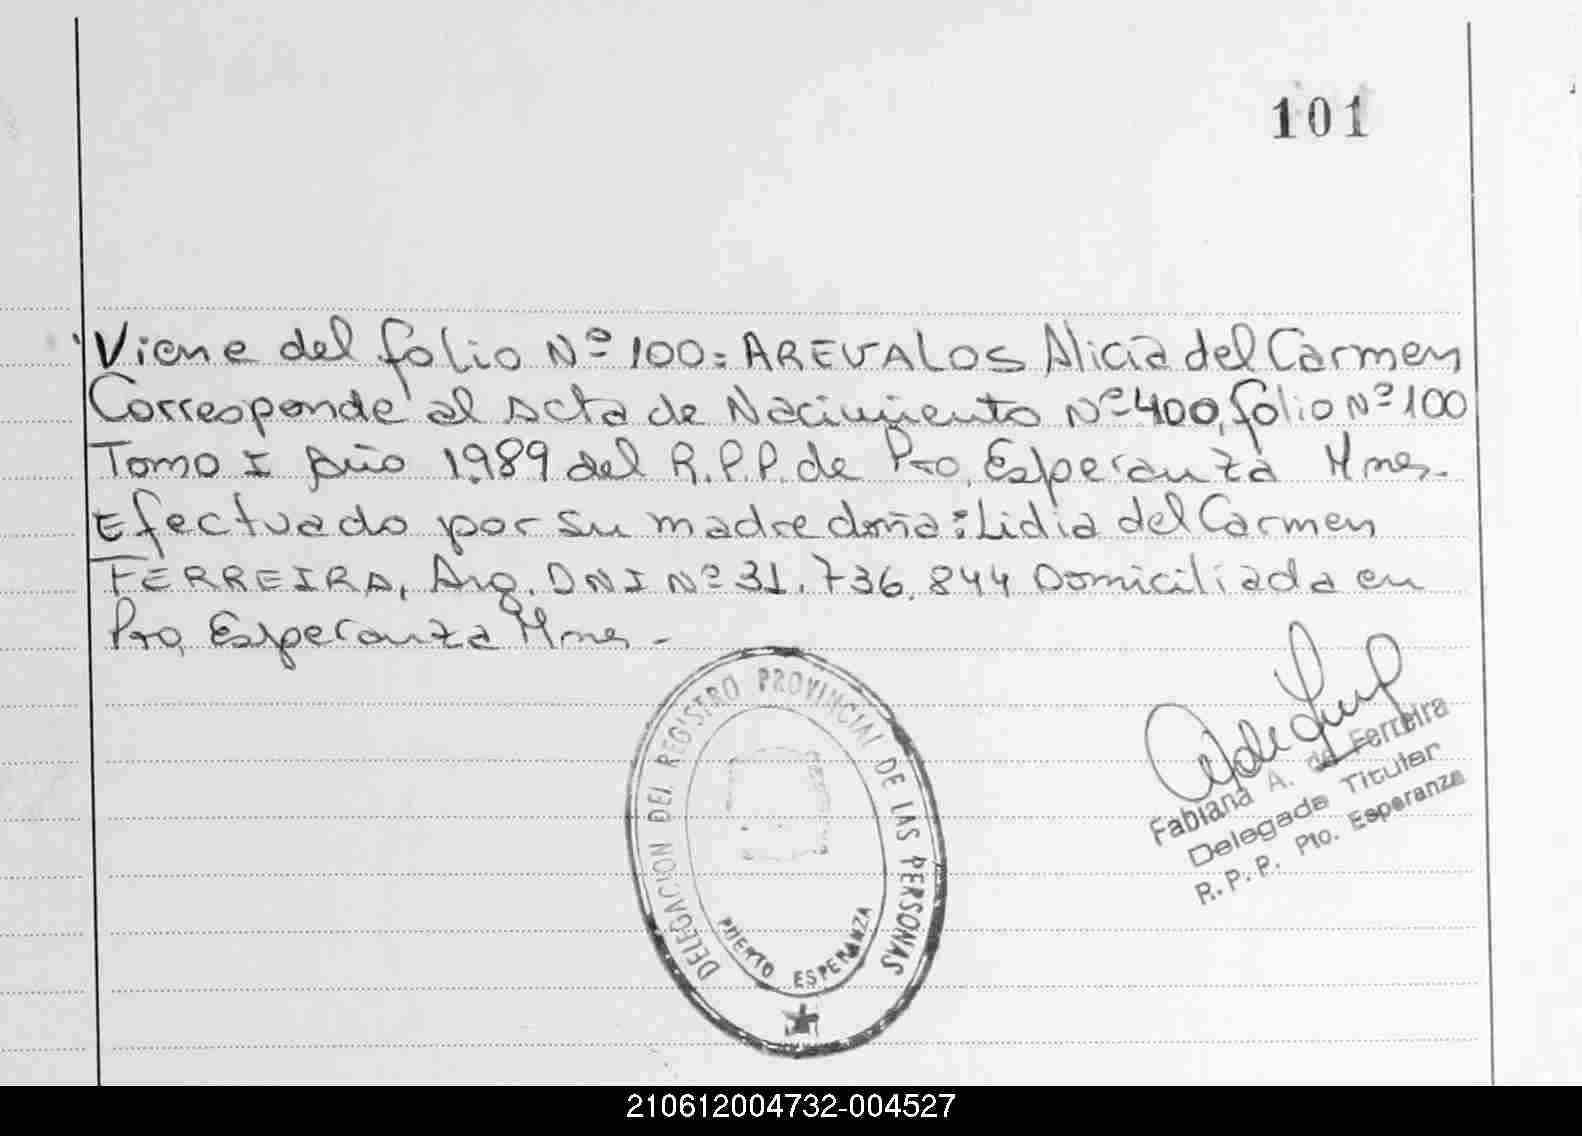 101
Viene del folio Nº 100: AREVALOS Alicia del Carmen
Corresponde al Acta de Nacimiento Nº 400, folio Nº 100
Tomo I Año 1.989 del R.P.P. de Pto. Esperanza Mnes.
Efectuado por su madre doña: Lidia del Carmen
FERREIRA, Arg. DNI Nº 31.736.844 Domiciliada en
Pto. Esperanza Mnes.-
DELEGACION DEL REGISTRO PROVINCIAL DE LAS PERSONAS
PUERTO ESPERANZA
Fabiana A. de Ferreira
Delegada Titular
R.P.P. Pto. Esperanza
210612004732-004527